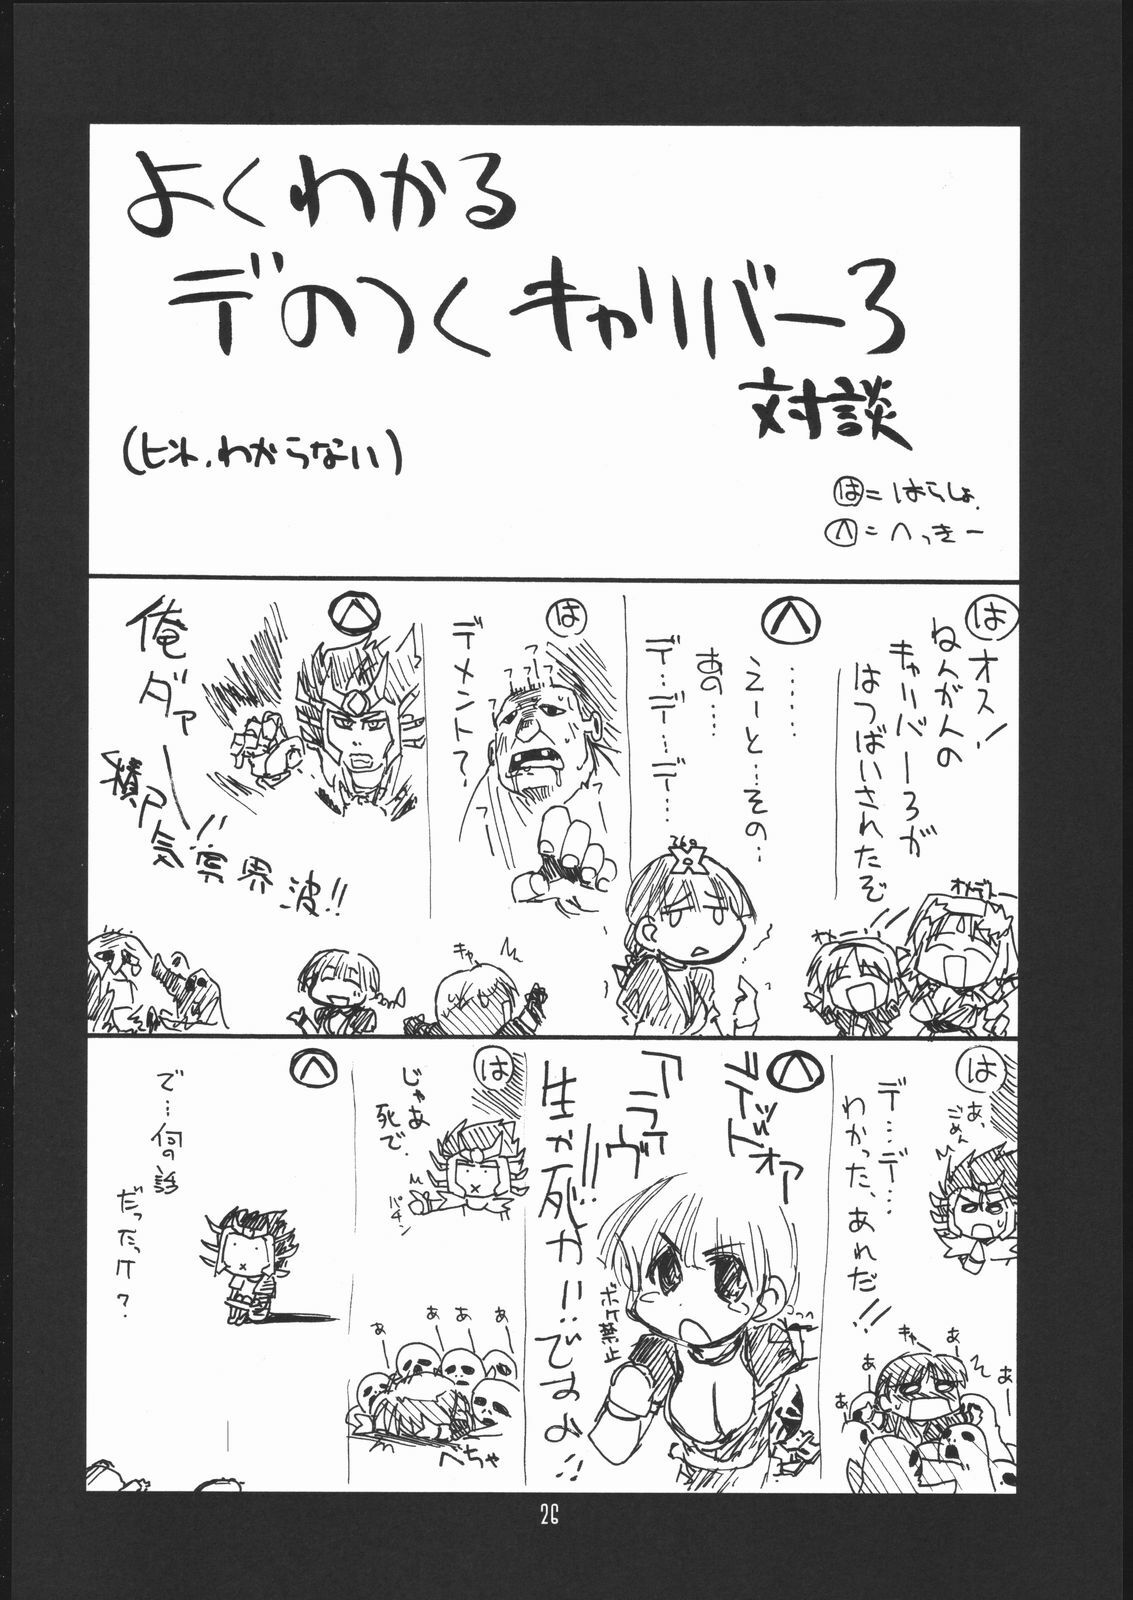 よくわかる
デのつくキャリバー3
対談
(ヒント、わからない)
は=はらしょ
へ=へっきー
は
オス!
ねんがんの
キャリバー3が
はつばいされたぞ
オメデトー
オトー!!
へ
……
えーと…その…
あの…
デ…デ…デ…
360
は
デメント?
キャー
へ
俺ダァー!!
積尸気冥界波!!
は
あ、
ごめん
デ…デ…
わかった、あれだ!!
あー
あー
キャー
あー
あー
へ
デッドオア
アライヴ
生か死か!!ですよ!!
ボケ禁止
は
じゃあ
死で.
パチン
あ
あ
あ
あ
へちゃ
へ
で…何の話
だったっけ?
26